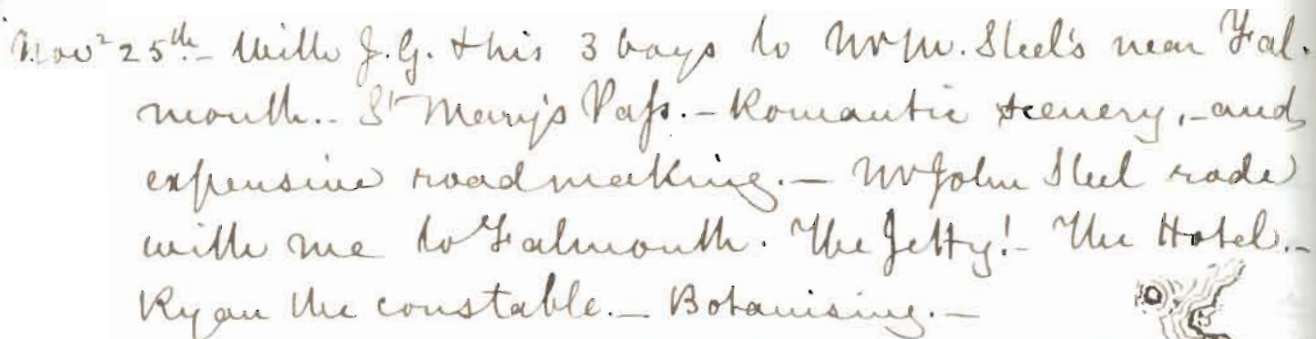 Novr 25th.- With J.G. & his 3 boys to Mr M. Steel's near Fal-
mouth.- St Mary's Pass.- Romantic scenery,- and
expensive roadmaking.- Mr John Steel rode
with me to Falmouth. The Jetty!- The Hotel.-
Ryan the constable.- Botanising.-